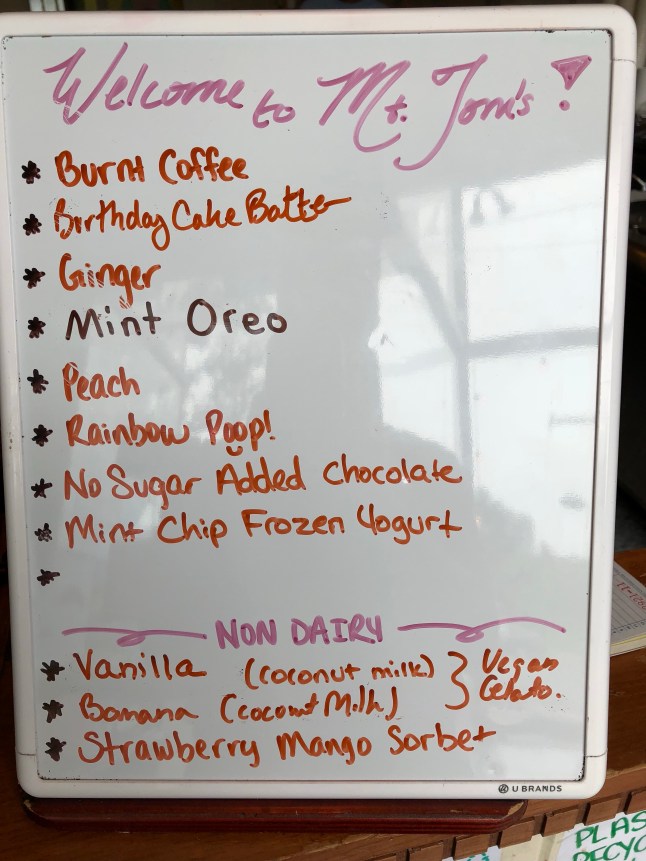 Welcome to Mt. Tom's!
* Burnt Coffee
* Birthday Cake Batter
* Ginger
* Mint Oreo
* Peach
* Rainbow Poop!
* No Sugar Added Chocolate
* Mint Chip Frozen Yogurt
*
NON DAIRY
* Vanilla (coconut milk) } Vegan
* Banana (Coconut Milk) } Gelato.
* Strawberry Mango Sorbet
U BRANDS
PLAS
RECYC